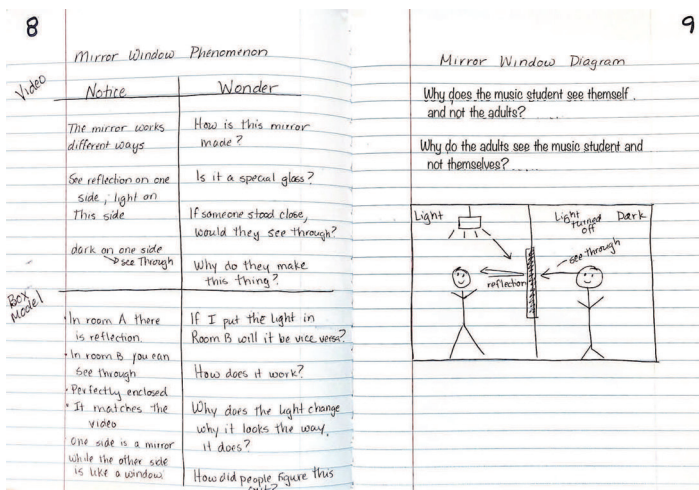 8
Mirror Window Phenomenon
Video
Notice
Wonder
The mirror works
different ways
How is this mirror
made?
See reflection on one
side, light on
This side
Is it a special glass?
If someone stood close,
would they see through?
dark on one side
see Through
Why do they make
this thing?
Box
Model
In room A there
is reflection.
If I put the light in
Room B will it be vice versa?
In room B you can
see through
How does it work?
Perfectly enclosed
It matches the
video
Why does the light change
why it looks the way,
it does?
One side is a mirror
while the other side
is like a window.
How did people figure this
9
Mirror Window Diagram
Why does the music student see themself
and not the adults?
Why do the adults see the music student and
not themselves?
Light
Light
turned
off
Dark
see through
reflection